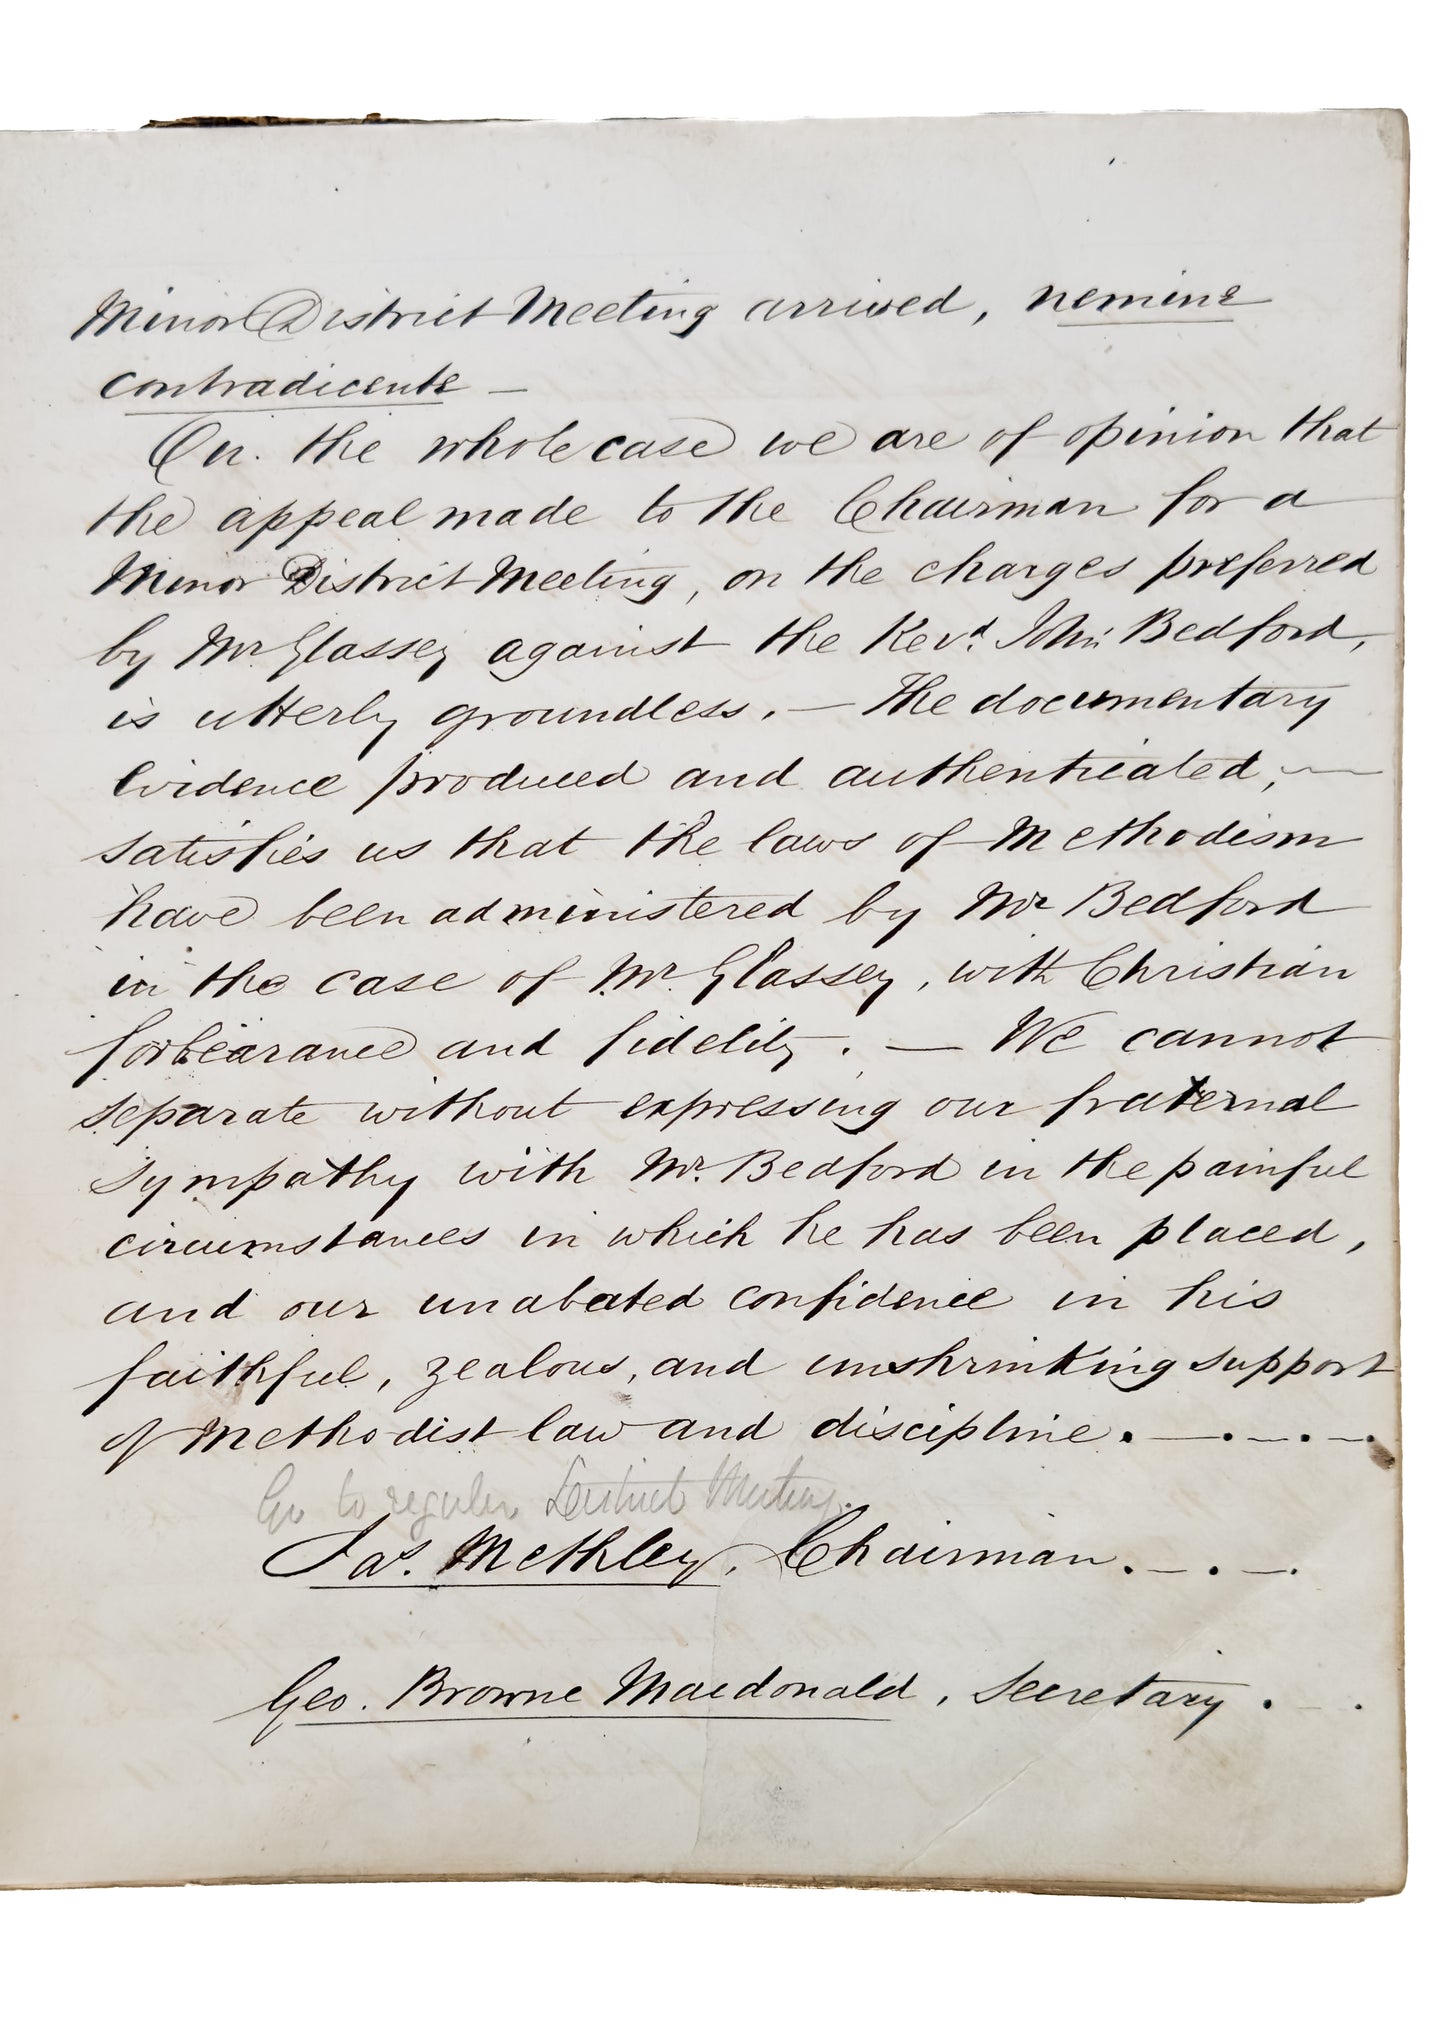 Minor District Meeting arrived, nemine
contradicente —
On the whole case we are of opinion that
the appeal made to the Chairman for a
Minor District Meeting, on the charges preferred
by Mr Glassey against the Revd. John Bedford,
is utterly groundless. — The documentary
evidence produced and authenticated, —
satisfies us that the laws of Methodism
have been administered by Mr Bedford
in the case of Mr. Glassey, with Christian
forbearance and fidelity. — We cannot
separate without expressing our fraternal
sympathy with Mr. Bedford in the painful
circumstances in which he has been placed,
and our unabated confidence in his
faithful, zealous, and unshrinking support
of Methodist law and discipline. —.—.—.
Go to regular District Meeting.
Jas. Methley, Chairman. —. —.
Geo. Browne Macdonald, Secretary. — .